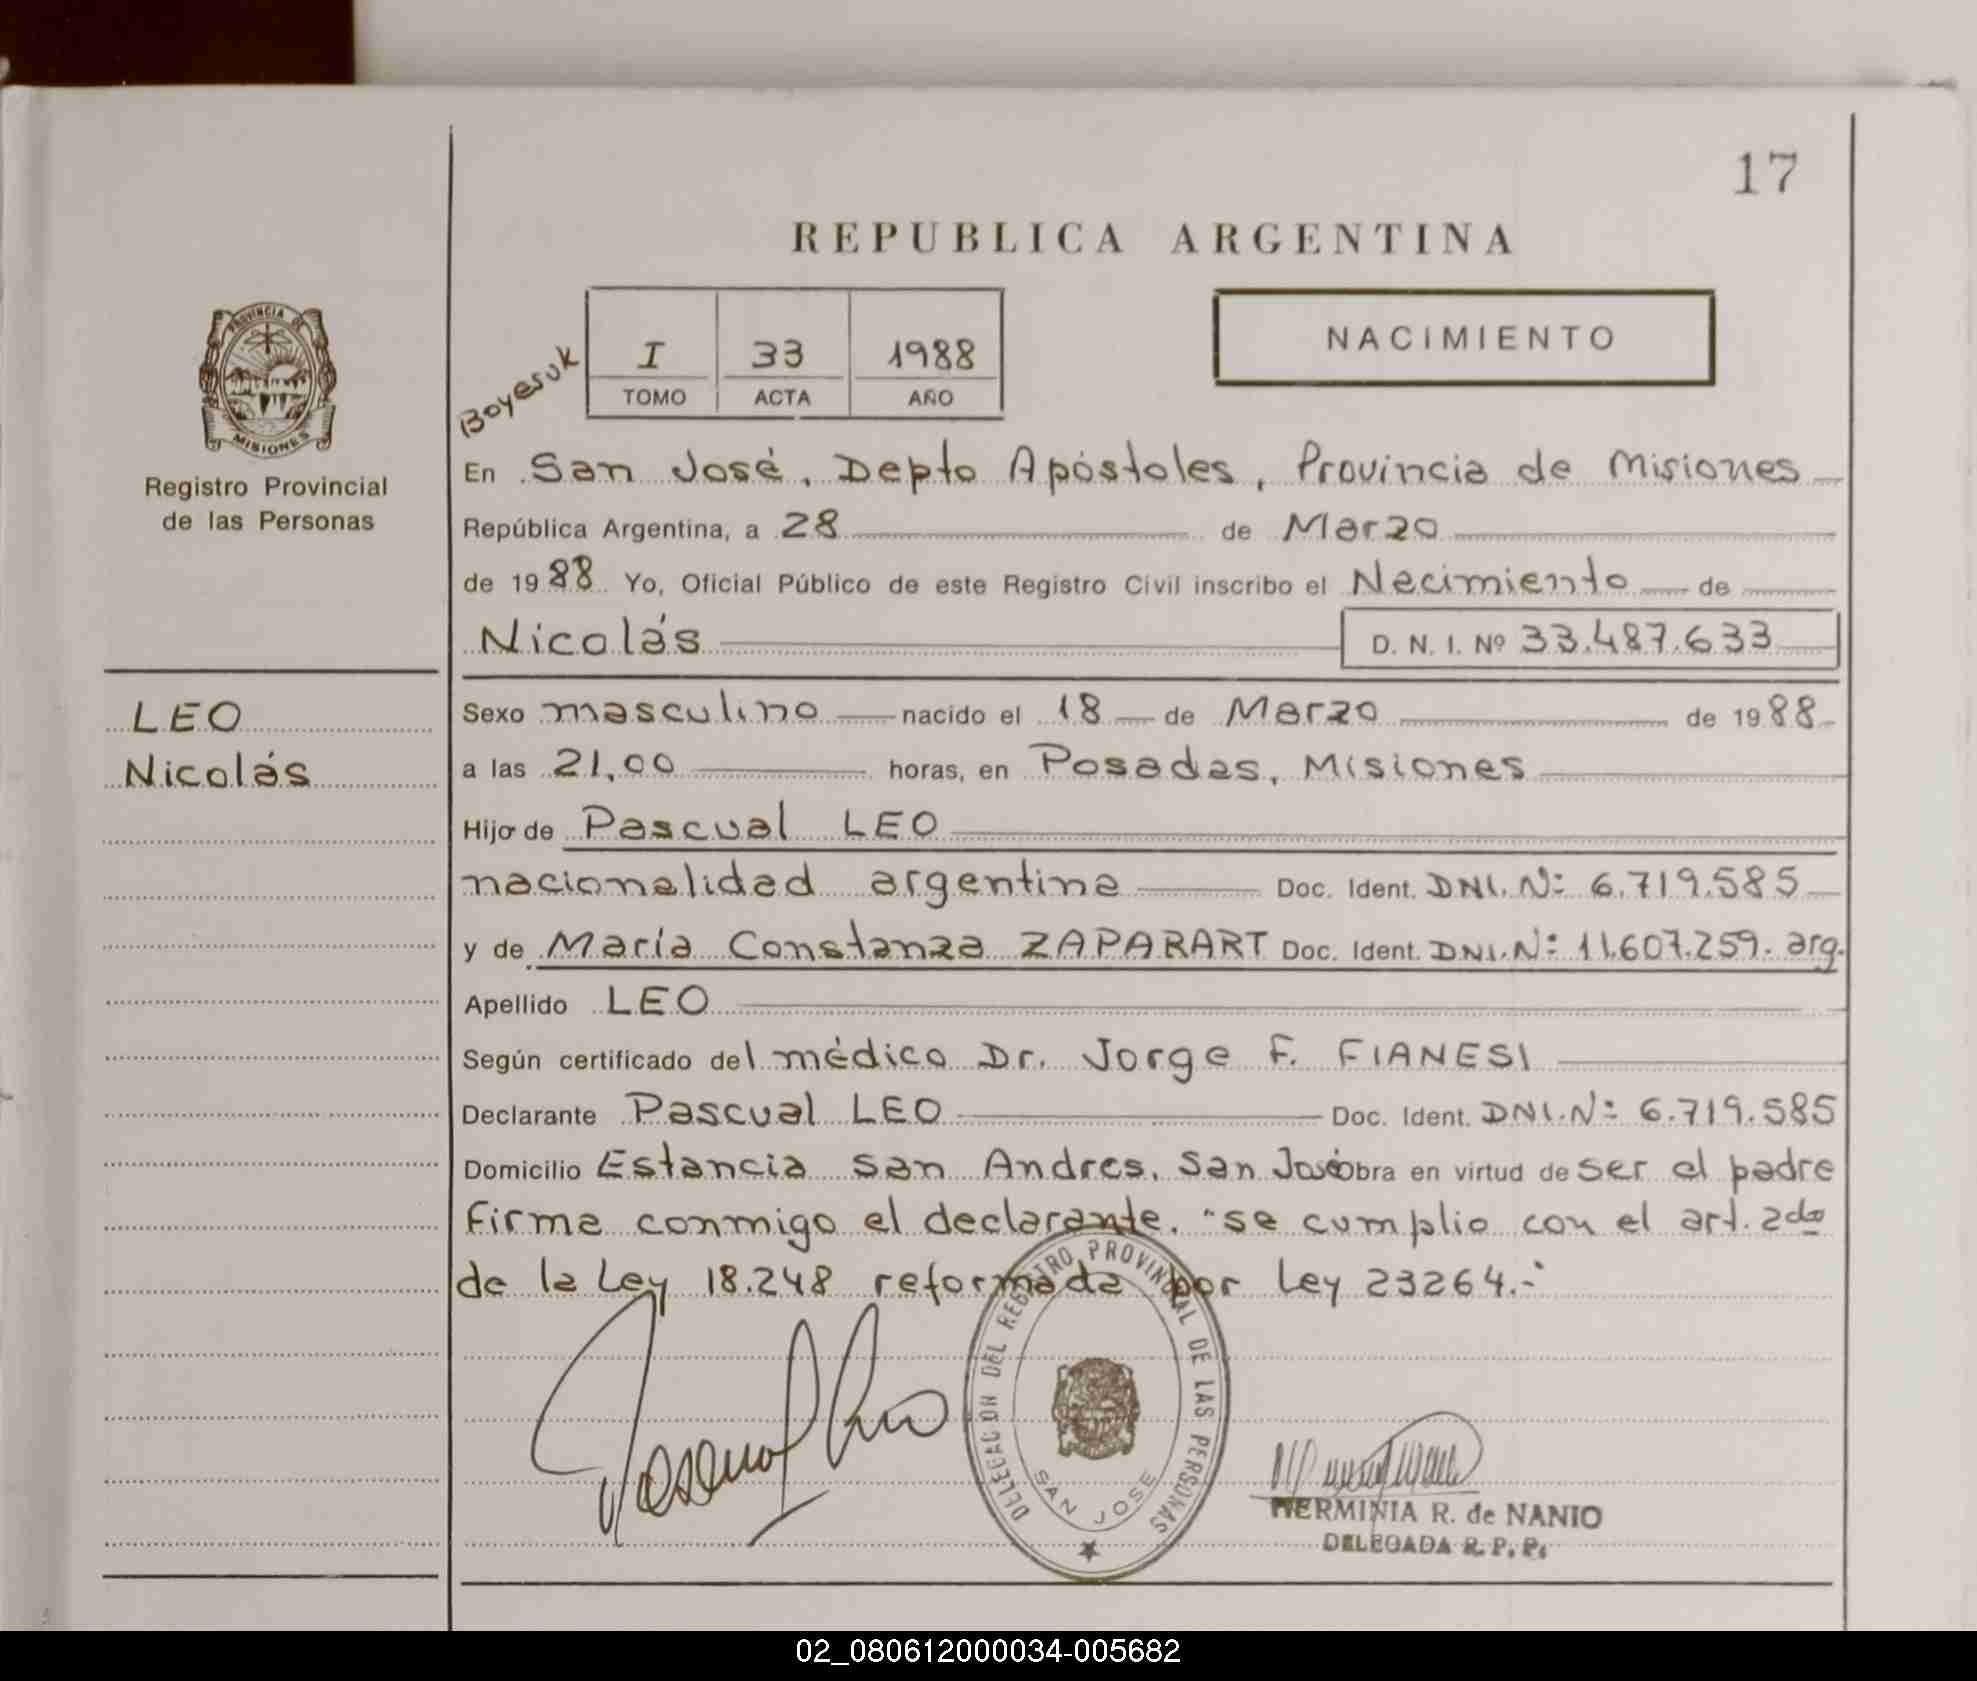 17
REPUBLICA ARGENTINA
PROVINCIA DE
MISIONES
Registro Provincial
de las Personas
Boyesuk
I 33 1988
TOMO ACTA AÑO
NACIMIENTO
En San José, Depto Apóstoles, Provincia de Misiones
República Argentina, a 28 de Marzo
de 1988 Yo, Oficial Público de este Registro Civil inscribo el Nacimiento de
Nicolás D. N. I. Nº 33.487.633
LEO
Nicolás
Sexo masculino nacido el 18 de Marzo de 1988
a las 21,00 horas, en Posadas, Misiones
Hijo de Pascual LEO
nacionalidad argentina Doc. Ident. DNI. Nº 6.719.585
y de María Constanza ZAPARART Doc. Ident. DNI. Nº 11.607.259. arg.
Apellido LEO
Según certificado del médico Dr. Jorge F. FIANESI
Declarante Pascual LEO Doc. Ident. DNI. Nº 6.719.585
Domicilio Estancia San Andres. San José obra en virtud de ser el padre
Firma conmigo el declarante. "se cumplio con el art. 2do
de la Ley 18.248 reformada por Ley 23264.-"
DELEGACION DEL REGISTRO PROVINCIAL DE LAS PERSONAS
SAN JOSE
HERMINIA R. de NANIO
DELEGADA R. P. P.
02_080612000034-005682